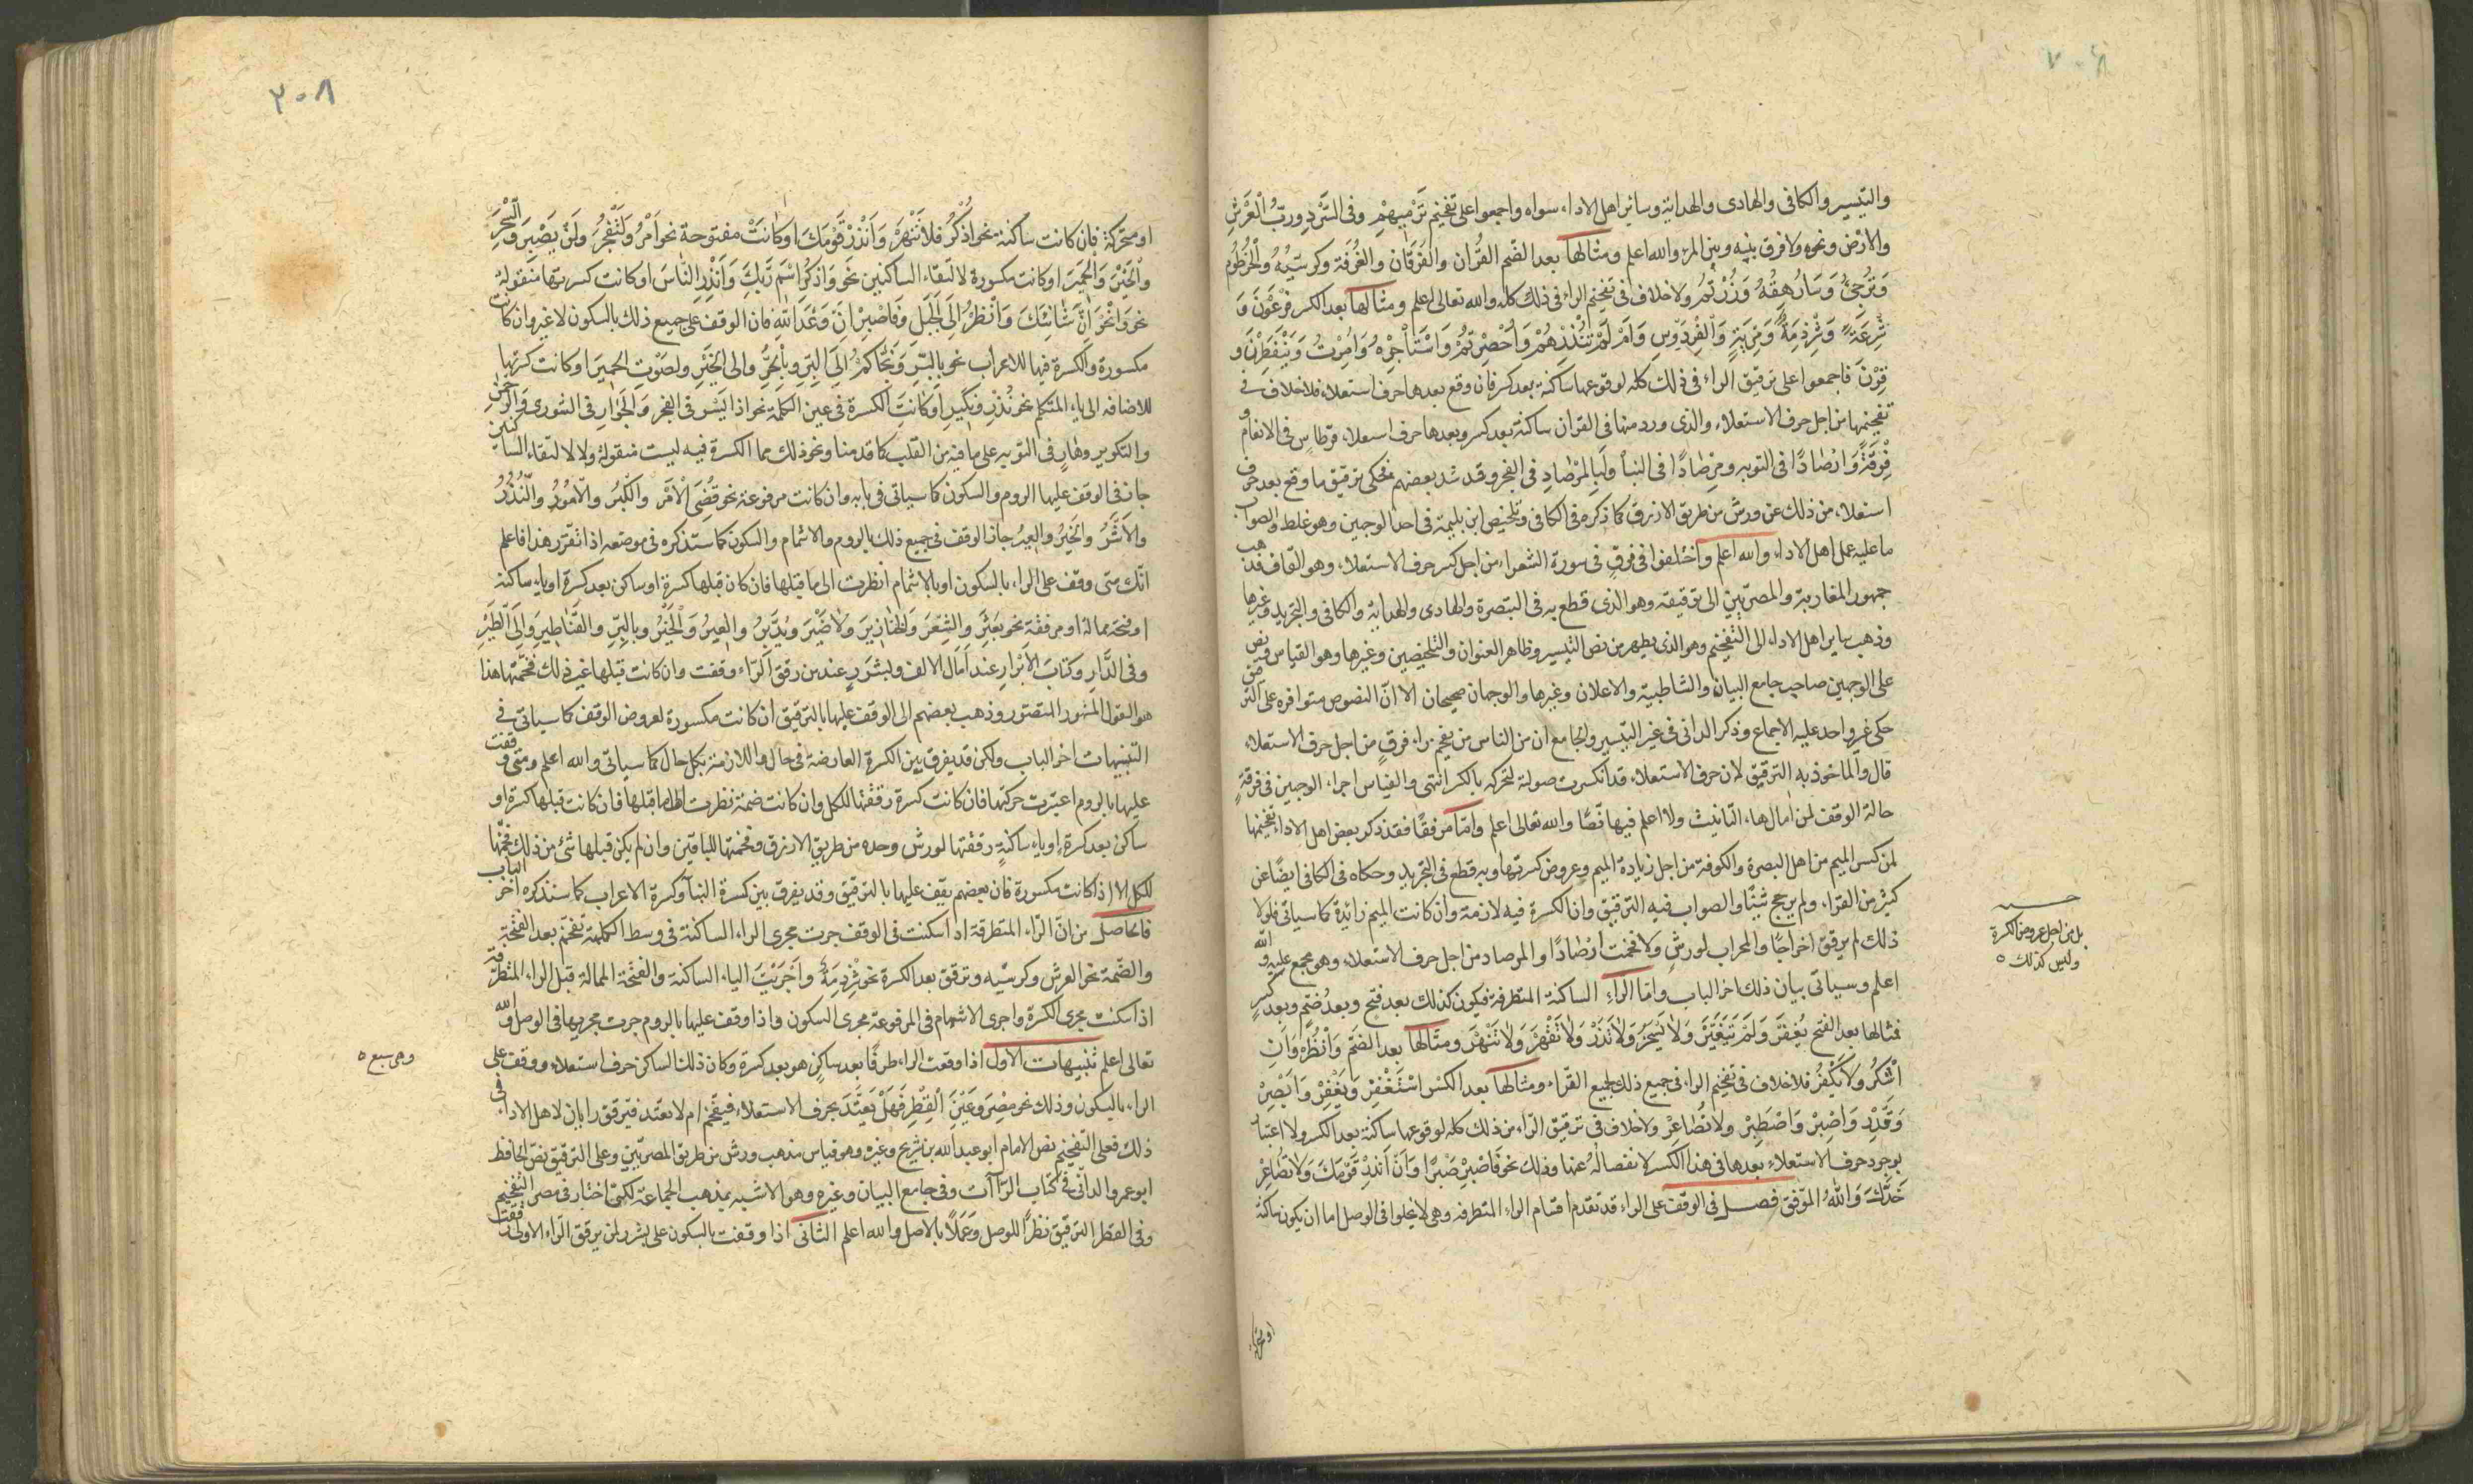 والتيسير والكافى والهادى والهداية وسائر اهل الاداء سواه واجمعوا على تفخيم ترميهم وفى السرد ورب العرش
والارض ونحوه ولا فرق بينه وبين المرء والله اعلم ومثالها بعد الضم القرآن والفرقان والغرفة وكرسيه والخرطوم
وترجى وسارهقه وزرتم ولا خلاف فى تفخيم الراء فى ذلك كله والله تعالى اعلم ومثالها بعد الكسر فرعون و
شرعة وشرذمة ومرية والفردوس وام لم تنذرهم واحصرتم واستأجره وامرت وينفطرن و
قرن فاجمعوا على ترقيق الراء فى ذلك كله لوقوعها ساكنة بعد كسر فان وقع بعدها حرف استعلاء فلا خلاف فى
تفخيمها من اجل حرف الاستعلاء والذى ورد منها فى القران ساكنة بعد كسر وبعدها حرف استعلاء قرطاس فى الانعام و
فرقة وارصادا فى التوبه ومرصادا فى النبأ ولبالمرصاد فى الفجر وقد شذ بعضهم فحكى ترقيق ما وقع بعد حرف
استعلاء من ذلك عن ورش من طريق الازرق كما ذكره فى الكافى وتلخيص ابن بليمة فى احد الوجهين وهو غلط والصواب
ما عليه عمل اهل الاداء والله اعلم واختلفوا فى فرق فى سورة الشعراء من اجل كسر حرف الاستعلاء وهو القاف فذهب
جمهور المغاربة والمصريين الى ترقيقه وهو الذى قطع به فى التبصرة والهادى والهداية والكافى والتجريد وغيرها
وذهب ساير اهل الاداء الى التفخيم وهو الذى يظهر من نص التيسير وظاهر العنوان والتلخيصين وغيرها وهو القياس ونص
على الوجهين صاحب جامع البيان والشاطبية والاعلان وغيرها والوجهان صحيحان الا ان النصوص متوافره على الترقيق
حكى غير واحد عليه الاجماع وذكر الدانى فى غير التيسير والجامع ان من الناس من يفخم راء فرق من اجل حرف الاستعلاء
قال والماخوذ به الترقيق لان حرف الاستعلاء قد انكسرت صولته لتحركه بالكسر انتهى والقياس اجراء الوجهين فى فرقة
حالة الوقف لمن امال هاء التانيث ولا اعلم فيها نصا والله تعالى اعلم واما مرفقا فقد ذكر بعض اهل الاداء تفخيمها
لمن كسر الميم من اهل البصرة والكوفة من اجل زيادة الميم وعروض كسرتها وبه قطع فى التجريد وحكاه فى الكافى ايضا عن
كثير من القراء ولم يرجح شيئا والصواب فيه الترقيق وان الكسرة فيه لازمة وان كانت الميم زائدة كما سياتى فلولا
ذلك لم يرقق اخراجا والمحراب لورش ولا فخمت ارصادا والمرصاد من اجل حرف الاستعلاء وهو مجمع عليه والله
اعلم وسياتى بيان ذلك اخر الباب واما الراء الساكنة المتطرفة فيكون كذلك بعد فتح وبعد ضم وبعد كسر
فمثالها بعد الفتح يغفر ولم يتغير ولا يسخر ولا تذر ولا تقهر ولا تنهر ومثالها بعد الضم وانظر وان
اشكر ولا يكفر فلا خلاف فى تفخيم الراء فى جميع ذلك لجميع القراء ومثالها بعد الكسر استغفر ويغفر وابصر
وقدر واصبر واصطبر ولا تصاعر ولا خلاف فى ترقيق الراء من ذلك كله لوقوعها ساكنة بعد الكسر ولا اعتبار
بوجود حرف الاستعلاء بعدها فى هذا الكسر لانفصاله عنها وذلك نحو فاصبر صبرا وان انذر قومك ولا تصاعر
خدك والله الموفق فصل فى الوقف على الراء قد تقدم اقسام الراء المتطرفه وهى لا يخلوا فى الوصل اما ان يكون ساكنة
بل من اجل عروض الكسرة
وليس كذلك
او متحركة
٣٠٨
او متحركة فان كانت ساكنة نحو اذكر فلا تنهر وانذر قومك او كانت مفتوحة نحو امر ولنفجر ولن يصبر والسحر
والخير والحمير او كانت مكسورة لالتقاء الساكنين نحو واذكر اسم ربك وانذر الناس او كانت كسرتها منقولة
نحو وانحر ان شانئك وانظر الى الجبل وفاصبر ان وعد الله فان الوقف على جميع ذلك بالسكون لا غير وان كانت
مكسورة والكسرة فيها للاعراب نحو بالبر ونجاكم الى البر وبالحر والى الخير ولصوت الحمير او كانت كسرتها
للاضافه الى ياء المتكلم نحو نذر ونكير او كانت الكسرة فى عين الكلمة نحو اذا يسر فى الفجر والجوار فى الشورى والرحمن
والتكوير وهار فى التوبه على ما فيه من القلب كما قدمنا ونحو ذلك مما الكسرة فيه ليست منقولة ولا لالتقاء الساكنين
جاز فى الوقف عليها الروم والسكون كما سياتى فى بابه وان كانت مرفوعة نحو قضى الامر والكبر والامور والنذر
والاشر والخير والعير جاز الوقف فى جميع ذلك بالروم والاشمام والسكون كما ستذكره فى موضعه اذا تقرر هذا فاعلم
انك متى وقفت على الراء بالسكون او بالاشمام انظرت الى ما قبلها فان كان قبلها كسرة او ساكن بعد كسرة او ياء ساكنة
او فتحة ممالة او مرققة نحو بعثر والشعر والخنازير ولا ضير ويدبر والعير والخير وبالبر والقناطير والى الطير
وفى الدار وكتاب الابرار عند من امال الالف وبشرر عند من رقق الراء وقفت وان كانت قبلها غير ذلك فخمتها هذا
هو القول المشهور المتصور وذهب بعضهم الى الوقف عليها بالترقيق ان كانت مكسورة لعروض الوقف كما سياتى فى
التنبيهات اخر الباب ولكن قد يفرق بين الكسرة العارضة فى حال واللازمة بكل حال كما سياتى والله اعلم ومتى وقفت
عليها بالروم اعتبرت حركتها فان كانت كسرة رققتها للكل وان كانت ضمة نظرت الى ما قبلها فان كانت قبلها كسرة او
ساكن بعد كسرة او ياء ساكنة رققتها لورش وحده من طريق الازرق وفخمتها للباقين وان لم يكن قبلها شئ من ذلك فخمتها
للكل الا اذا كانت مكسورة فان بعضهم يقف عليها بالترقيق وقد يفرق بين كسرة البناء وكسرة الاعراب كما سنذكره اخر الباب
فالحاصل من ان الراء المتطرفة اذا سكنت فى الوقف جرت مجرى الراء الساكنة فى وسط الكلمة تفخم بعد الفتحة
والضمة نحو العرش وكرسيه وترقق بعد الكسرة نحو شرذمة واجريت الياء الساكنة والفتحة الممالة قبل الراء المتطرفة
اذا سكنت مجرى الكسرة واجرى الاشمام فى المرفوعة مجرى السكون واذا وقف عليها بالروم جرت مجريها فى الوصل والله
تعالى اعلم تنبيهات الاول اذا وقعت الراء طرفا بعد ساكن هو بعد كسرة وكان ذلك الساكن حرف استعلاء ووقف على
الراء بالسكون وذلك نحو مصر وعين القطر فهل يعتد بحرف الاستعلاء فيفخم ام لا يعتد فيرقق رايان لاهل الاداء فى
ذلك فعلى التفخيم نص الامام ابو عبد الله بن شريح وغيره وهو قياس مذهب ورش من طريق المصريين وعلى الترقيق نص الحافظ
ابو عمرو الدانى فى كتاب الراآت وفى جامع البيان وغيره وهو الاشبه بمذهب الجماعة لكنى اختار فى مصر التفخيم
وفى القطر الترقيق نظرا للوصل وعملا بالاصل والله اعلم الثانى اذا وقفت بالسكون على بشرر لمن يرقق الراء الاولى رققت
وهى سبع